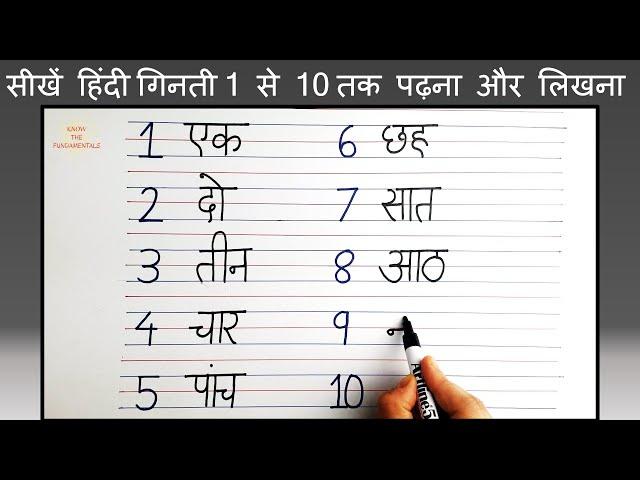 सीखें हिंदी गिनती 1 से 10 तक पढ़ना और लिखना
KNOW
THE
FUNDAMENTALS
1 एक
2 दो
3 तीन
4 चार
5 पांच
6 छह
7 सात
8 आठ
9
10
Artline